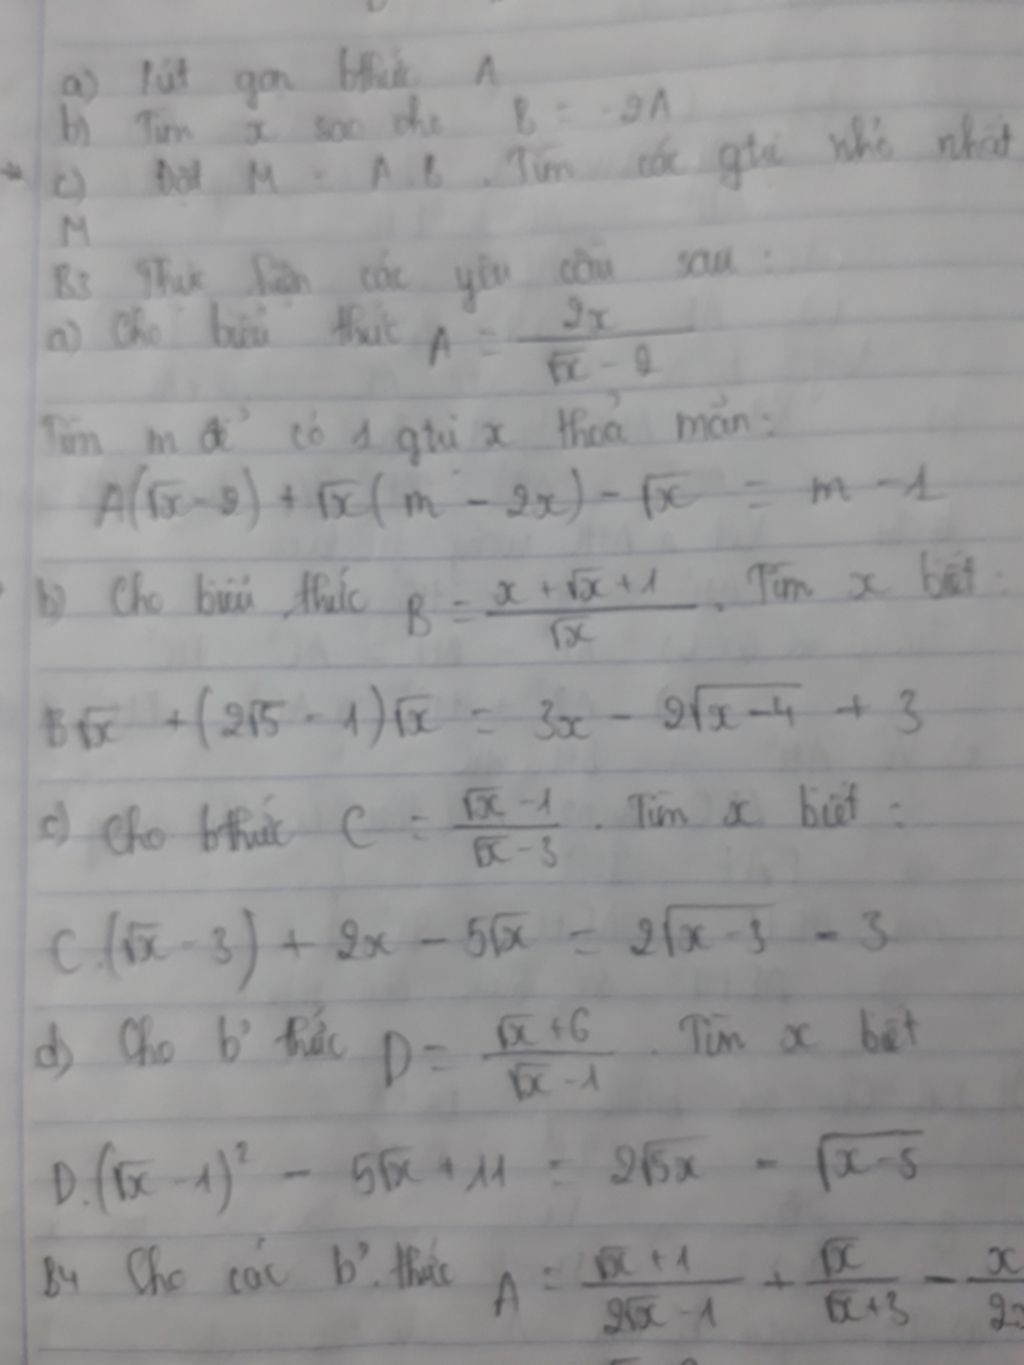 a) Rút gọn bthức A
b) Tìm x sao cho B = -2A
c) Đặt M = A.B. Tìm các gtrị nhỏ nhất
M
B3 Thực hiện các yêu cầu sau :
a) Cho biểu thức A = \frac{2x}{\sqrt{x} - 2}
Tìm m để có 1 gtrị x thoả mãn :
A(\sqrt{x} - 2) + \sqrt{x}(m - 2x) - \sqrt{x} = m - 1
b) Cho biểu thức B = \frac{x + \sqrt{x} + 1}{\sqrt{x}}. Tìm x biết :
B\sqrt{x} + (2\sqrt{5} - 1)\sqrt{x} = 3x - 2\sqrt{x-4} + 3
c) Cho bthức C = \frac{\sqrt{x} - 1}{\sqrt{x} - 3}. Tìm x biết :
C.(\sqrt{x} - 3) + 2x - 5\sqrt{x} = 2\sqrt{x-3} - 3
d) Cho b' thức D = \frac{\sqrt{x} + 6}{\sqrt{x} - 1}. Tìm x biết
D.(\sqrt{x} - 1)^2 - 5\sqrt{x} + 11 = 2\sqrt{5x} - \sqrt{x-5}
B4 Cho các b'. thức A = \frac{\sqrt{x} + 1}{2\sqrt{x} - 1} + \frac{\sqrt{x}}{\sqrt{x} + 3} - \frac{x}{2x}